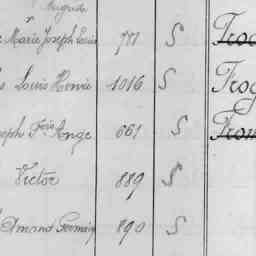 Auguste
Marie Joseph Louis 777 S
Louis Henri 1016 S Frog
Joseph Fçois Ange 661 S From
Victor 889 S
Amand Germain 890 S